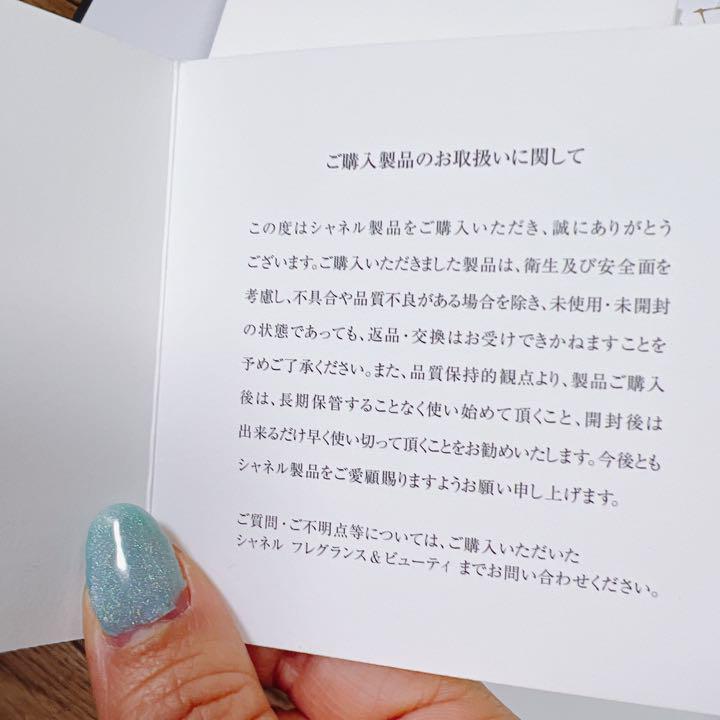 ご購入製品のお取扱いに関して
この度はシャネル製品をご購入いただき、誠にありがとう
ございます。ご購入いただきました製品は、衛生及び安全面を
考慮し、不具合や品質不良がある場合を除き、未使用・未開封
の状態であっても、返品・交換はお受けできかねますことを
予めご了承ください。また、品質保持的観点より、製品ご購入
後は、長期保管することなく使い始めて頂くこと、開封後は
出来るだけ早く使い切って頂くことをお勧めいたします。今後とも
シャネル製品をご愛顧賜りますようお願い申し上げます。
ご質問・ご不明点等については、ご購入いただいた
シャネル フレグランス&ビューティ までお問い合わせください。